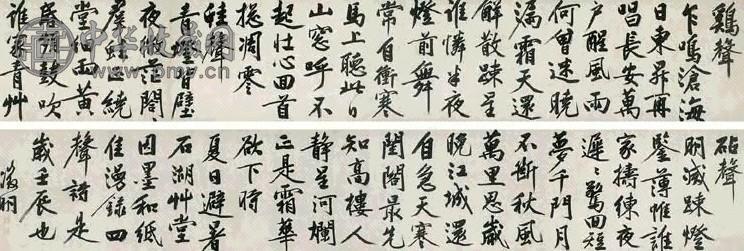 雞聲
乍鳴滄海
日東昇再
唱長安萬
戶醒風雨
何曾迷曉
漏霜天還
解散疎星
誰憐半夜
燈前舞
常自衝寒
馬上聽此日
山窓呼不
起壯心回首
總凋零
聲
青燈自壁
夜微茫閣
繞
堂細雨黃
昏頭鼓吹
誰家青草
砧聲
明滅疎燈
鑒薄帷誰
家擣練夜
遲遲驚回短
夢千門月
不斷秋風
萬里思歲
晚江城還
自急天寒
閨閤最先
知高樓人
靜星河爛
正是霜華
欲下時
夏日避暑
石湖草堂
因墨和紙
佳漫錄四
聲詩是
歲壬辰也
徵明